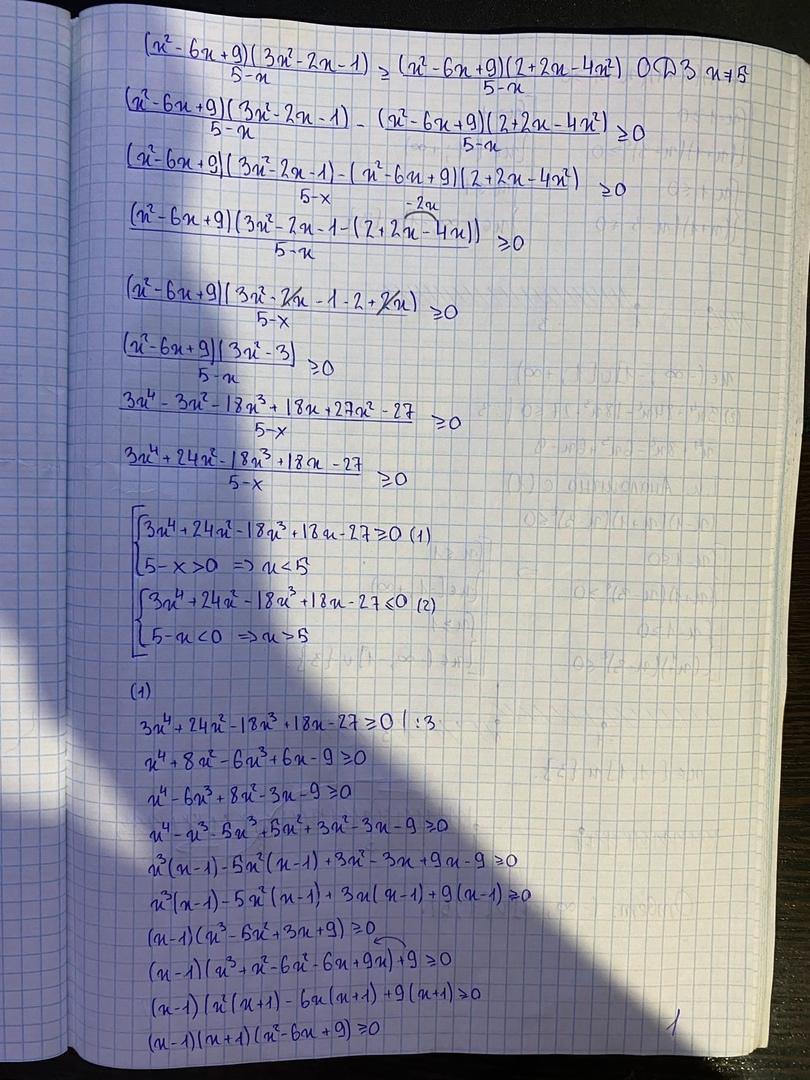 (x²-6x+9)(3x²-2x-1)/5-x ≥ (x²-6x+9)(2+2x-4x²)/5-x ОДЗ x≠5
(x²-6x+9)(3x²-2x-1)/5-x - (x²-6x+9)(2+2x-4x²)/5-x ≥0
(x²-6x+9)(3x²-2x-1)-(x²-6x+9)(2+2x-4x²)/5-x ≥0
-2x
(x²-6x+9)(3x²-2x-1-(2+2x-4x))/5-x ≥0
(x²-6x+9)(3x²-2x-1-2+2x)/5-x ≥0
(x²-6x+9)(3x²-3)/5-x ≥0
3x⁴-3x²-18x³+18x+27x²-27/5-x ≥0
3x⁴+24x²-18x³+18x-27/5-x ≥0
3x⁴+24x²-18x³+18x-27≥0 (1)
5-x>0 ⇒ x<5
3x⁴+24x²-18x³+18x-27≤0 (2)
5-x<0 ⇒ x>5
(1)
3x⁴+24x²-18x³+18x-27≥0 | :3
x⁴+8x²-6x³+6x-9≥0
x⁴-6x³+8x²-3x-9≥0
x⁴-x³-5x³+5x²+3x²-3x-9≥0
x³(x-1)-5x²(x-1)+3x²-3x+9x-9≥0
x³(x-1)-5x²(x-1)+3x(x-1)+9(x-1)≥0
(x-1)(x³-5x²+3x+9)≥0
(x-1)(x³+x²-6x²-6x+9x)+9≥0
(x-1)(x²(x+1)-6x(x+1)+9(x+1)≥0
(x-1)(x+1)(x²-6x+9)≥0
1